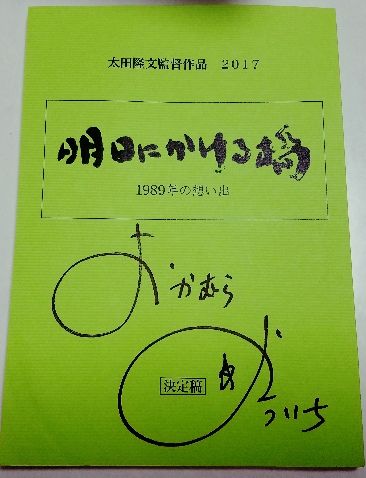 太田隆文監督作品 2017
明日にかける橋
1989年の想い出
おかむら
決定稿
ついち